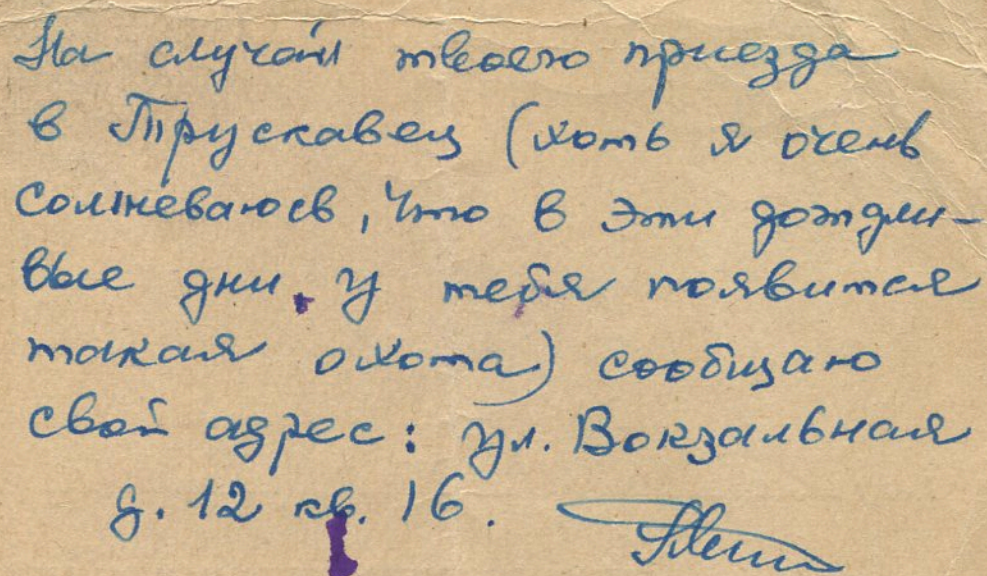 На случай твоего приезда
в Трускавец (хоть я очень
сомневаюсь, что в эти дождли-
вые дни у тебя появится
такая охота) сообщаю
свой адрес: ул. Вокзальная
д. 12 кв. 16.